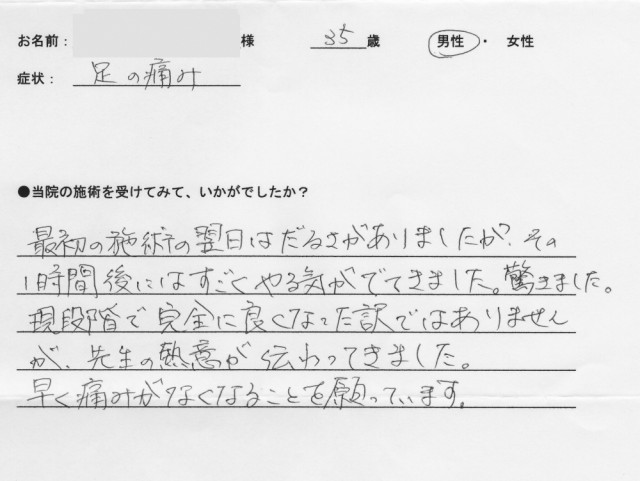 お名前： 様 35歳 男性 ・ 女性
症状： 足の痛み
●当院の施術を受けてみて、いかがでしたか？
最初の施術の翌日はだるさがありましたが、その
1時間後にはすごくやる気がでてきました。驚きました。
現段階で完全に良くなった訳ではありません
が、先生の熱意が伝わってきました。
早く痛みがなくなることを願っています。